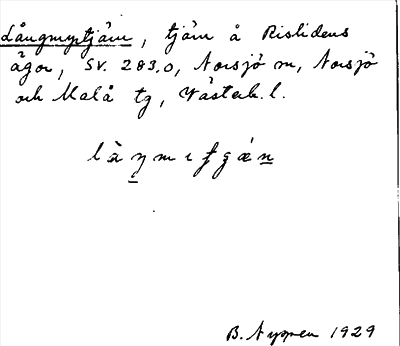 Långmyrtjärn, tjärn å Rislidens
ägor, Sv. 283.0, Norsjö sn, Norsjö
och Malå tg, Västerb. l.
B. Nyman 1929